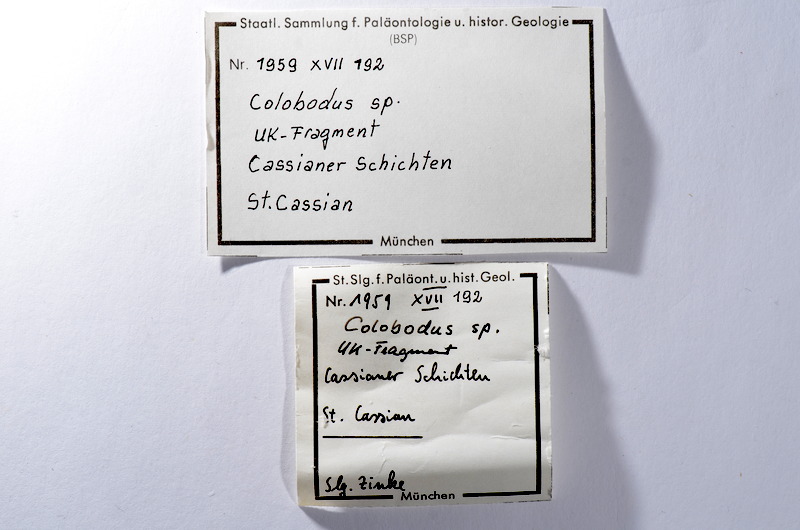 Staatl. Sammlung f. Paläontologie u. histor. Geologie
(BSP)
Nr. 1959 XVII 192
Colobodus sp.
UK-Fragment
Cassianer Schichten
St. Cassian
München
St. Slg. f. Paläont. u. hist. Geol.
Nr. 1959 XVII 192
Colobodus sp.
UK-Fragment
Cassianer Schichten
St. Cassian
Slg. Zinke
München